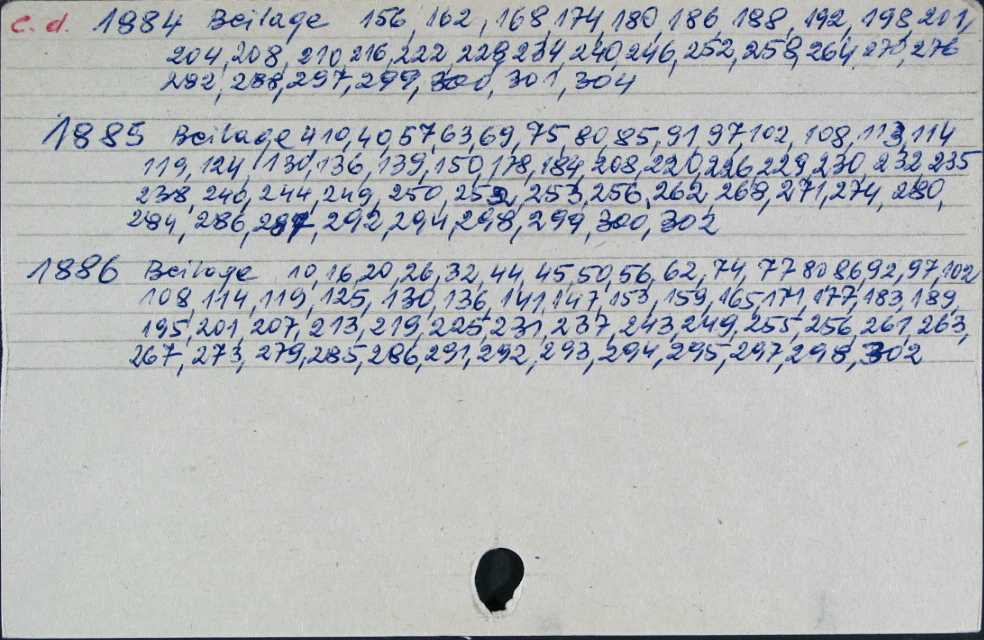 c.d. 1884 Beilage 156, 162, 168, 174, 180, 186, 188, 192, 198, 201,
204, 208, 210, 216, 222, 228, 234, 240, 246, 252, 258, 264, 270, 276
282, 288, 297, 299, 300, 301, 304
1885 Beilage 4, 10, 40, 57, 63, 69, 75, 80, 85, 91, 97, 102, 108, 113, 114
119, 124, 130, 136, 139, 150, 178, 184, 208, 220, 226, 229, 230, 232, 235
238, 240, 244, 249, 250, 252, 253, 256, 262, 268, 271, 274, 280,
284, 286, 287, 292, 294, 298, 299, 300, 302
1886 Beilage 10, 16, 20, 26, 32, 44, 45, 50, 56, 62, 74, 77, 80, 86, 92, 97, 102
108, 114, 119, 125, 130, 136, 141, 147, 153, 159, 165, 171, 177, 183, 189,
195, 201, 207, 213, 219, 225, 231, 237, 243, 249, 255, 256, 261, 263,
267, 273, 279, 285, 286, 291, 292, 293, 294, 295, 297, 298, 302